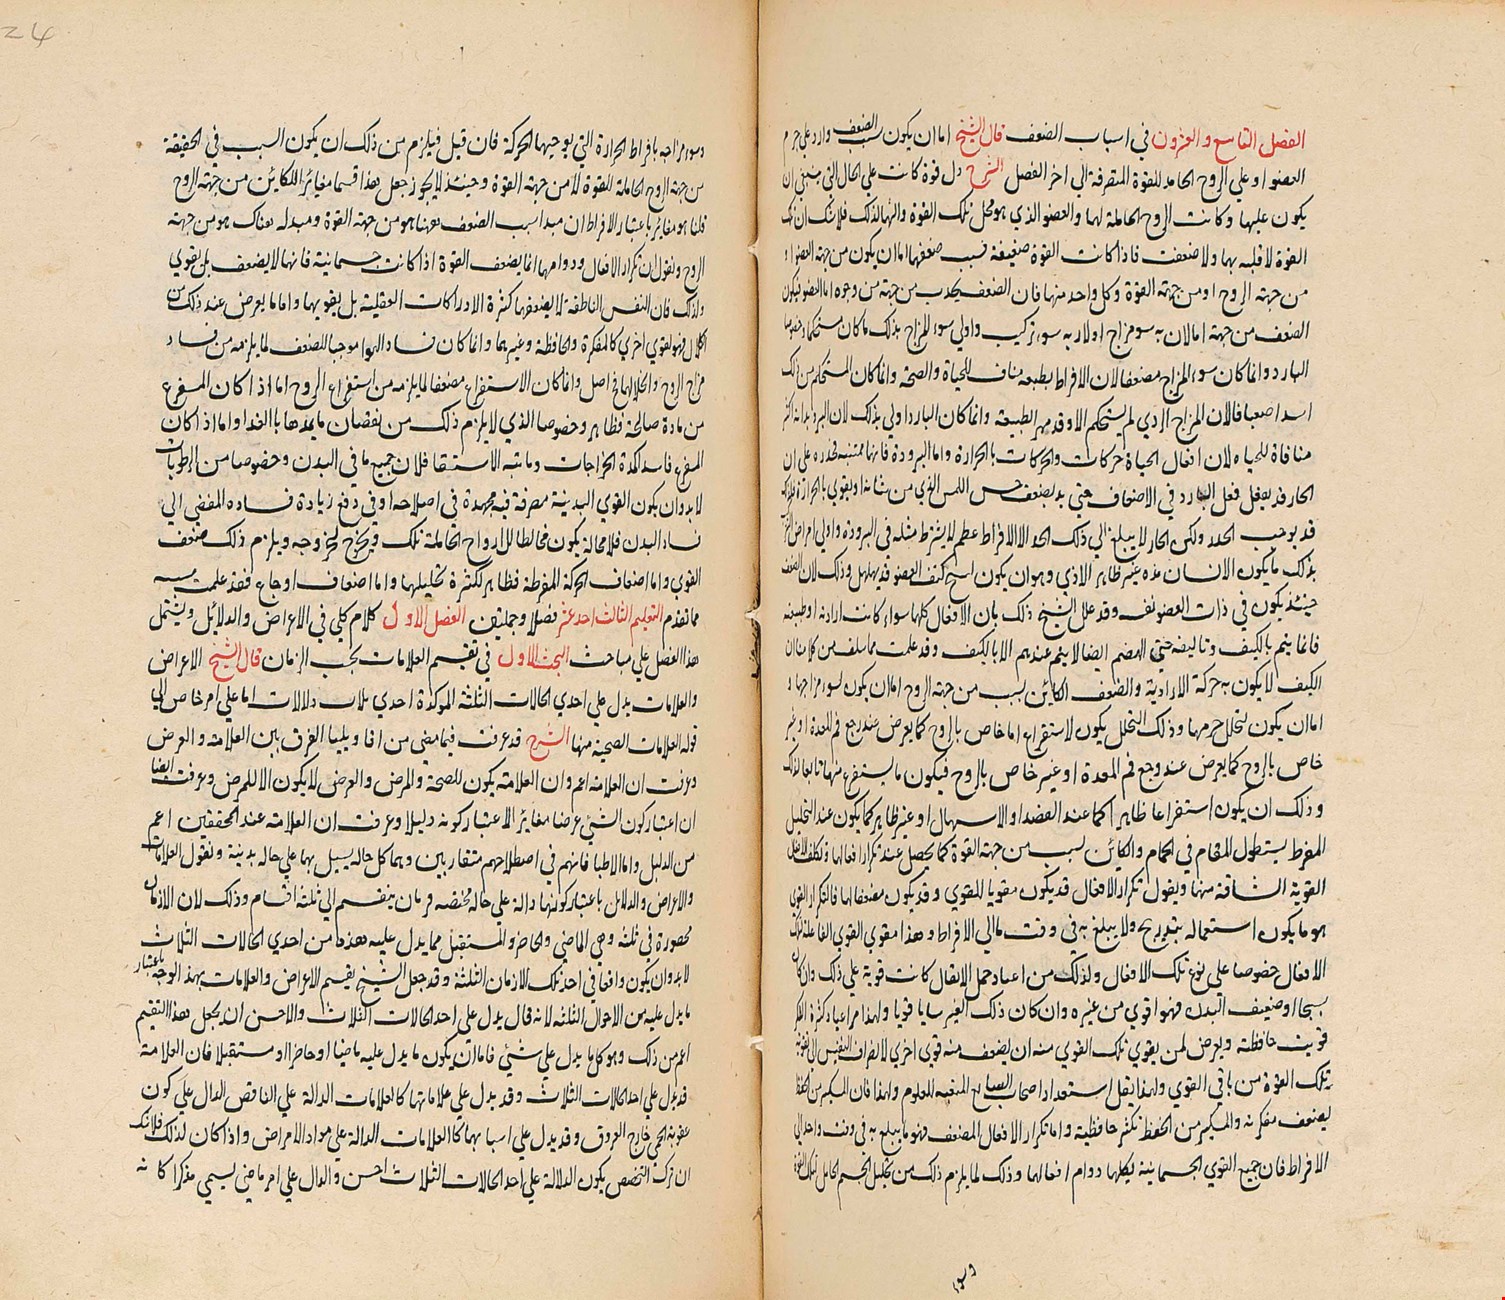 الفصل التاسع والعشرون في اسباب الضعف قال الشيخ اما ان يكون سبب الضعف وارد علي جرم
العضو او علي الروح الحامل للقوة المتصرفة الي اخر الفصل الشرح كل قوة كانت علي الحال التي ينبغي ان
يكون عليها وكانت الروح الحاملة لها والعضو الذي هو محل تلك القوة والتها كذلك فلا شك ان تلك
القوة لا قلبة بها ولا ضعفت فاذا كانت القوة ضعيفة فسبب ضعفها اما ان يكون من جهة العضو او
من جهة الروح او من جهة القوة وكل واحد منها فان الضعف يحدث من جهته من وجوه اما العضو فيكون
الضعف من جهته اما لان به سو مزاج او لان به سوء تركيب واولي سوء المزاج بذلك ما كان مستحكما وخصوصا
البارد وانما كان سوء المزاج مضعفا لان الافراط بطبعه مناف للحياة والصحة وانما كان المستحكم من ذلك
اشد اضعافا لان المزاج الردي لم يستحكم الا وقد قهر الطبيعة وانما كان البارد اولي بذلك لان البرد بذاته اكثر
منافاة للحياه لان افعال الحياة حركات والحركات بالحرارة واما البرودة فانها مميتة مخدرة علي ان
الحار قد يفعل فعل البارد في الاضعاف حتي يضعف حس اللمس الذي من شانه ان يقوي بالحرارة
قد يوجب الخدر ولكن الحار لا يبلغ الي ذلك الحد الا لافراط عظم لا يشترط مثله في البرودة واولي امراض
بذلك ما يكون الانسان عنده غير ظاهر الاذي وهو ان يكون نسج كيف العضو قد يهلهل وذلك لان الضعف
حينئذ يكون في ذات العضو نفسه وقد علل الشيخ ذلك بان الافعال كلها سواء كانت ارادية او طبيعية
فانما يتم بالليف وتاليفه حتي الهضم ايضا لا يتم عندهم الا بالليف وقد علمت مما سلف من كلامنا ان
الليف لا يكون به حركة الا ارادية والضعف الكائن بسبب من جهة الروح اما ان يكون لسوء مزاجها و
اما ان يكون لتحلل جرمها وذلك التحلل يكون لاستفراغ اما خاص بالروح كما يعرض عند وجع فم المعدة او غير
خاص بالروح كما يعرض عند وجع فم المعدة او غير خاص بالروح فيكون ما يستفرغ منها تابعا لذلك
وذلك ان يكون استفراغا ظاهرا كما عند الفصد والاسهال او غير ظاهر كما يكون عند التحليل
المفرط بطول المقام في الحمام والكائن بسبب من جهة القوة كما يحصل عند تكرار افعالها وتكلف الافعال
القوية الشاقة منها ويقول تكرار الافعال قد يكون مقويا للقوي وقد يكون مضعفا لها فالتكرار المقوي
هو ما يكون استعماله بتدريج ولا يبلغ به في وقت ما الي الافراط وهذا مقوي القوي الفاعلة لتلك
الافعال خصوصا علي نوع تلك الافعال ولذلك من اعتاد حمل الاثقال كانت قوية علي ذلك وان كان
شيخا او ضعيف البدن فهو اقوي من غيره وان كان ذلك الغير شابا قويا ولهذا من اعتاد كثرة الفكر
قويت حافظته ويعرض لمن يقوي تلك القوي منه ان يضعف منه قوي اخري لانصراف النفس الي تقوية
تلك القوة من باقي القوي ولهذا يقل استعداد اصحاب الصنايع المتعبه للعلوم ولهذا فان المكثر من الحفظ
يضعف مفكرته والمكثر من الحفظ تكثر حافظته واما تكرار الافعال المضعف فهو ما يبلغ به في وقت واحد الي
الافراط فان جميع القوي الجسمانية يكلها دوام افعالها وذلك لما يلزم ذلك من تحليل الجسم الحامل لتلك القوة
وسوء
وسوء مزاجه بافراط الحرارة التي يوجبها الحركة فان قيل فيلزم من ذلك ان يكون السبب في الحقيقة
من جهة الروح الحاملة للقوة لا من جهة القوة وحينئذ لا يجوز جعل هذا قسما مغايرا للكاين من جهة الروح
قلنا هو مغاير باعتبار الافراط ان مبدا سبب الضعف ههنا هو من جهة القوة ومبدله هناك هو من جهة
الروح ونقول ان تكرار الافعال ودوامها انما يضعف القوة اذا كانت جسمانية فانها لا يضعف بل يقوي
ولذلك فان النفس الناطقة لا يضعفها كثرة الادراكات العقلية بل يقويها واما ما يعرض عند ذلك من
الكلال فهو لقوي اخري كالمفكرة والحافظة وغيرهما وانما كان فساد الهوا موجبا للضعف لما يلزمه من فساد
مزاج الروح وانما كان الاستفراغ مضعفا لما يلزمه من استفراغ الروح اما اذا كان المستفرغ
من مادة صالحة فظاهر وخصوصا الذي لا يلزم ذلك من نقصان ما يمدها بالغذا واما اذا كان
المستفرغ فاسدا كمدة الخراجات ومائية الاستسقا فلان جميع ما في البدن وخصوصا من الرطوبات
لابد وان يكون القوي البدنية متصرفة فيه مجهدة في اصلاحه او في دفع زيادة فساده المفضي الي
فساد البدن فلا محالة يكون مخالطا للارواح الحاملة لتلك فيخرج لخروجه ويلزم ذلك ضعف
القوي واما اضعاف الحركة المفرطة فظاهر لكثرة تحليلها واما اضعاف الاوجاع فقد علمت سببه
مما تقدم التعليم الثالث احد عشر فصلا وجملتين الفصل الاول كلام كلي في الاعراض والدلائل ويشتمل
هذا الفصل علي مباحث البحث الاول في تقسيم العلامات بحسب الزمان قال الشيخ الاعراض
والعلامات يدل علي احدي الحالات الثلثة المذكورة احدي ثلاث دلالات اما علي امر خاص الي
قوله العلامات الصحية منها الشرح قد عرفت فيما مضي من اقاويلنا الفرق بين العلامة والعرض
وعرفت ان العلامة اعم وان العلامة يكون للصحة والمرض والعرض لا يكون الا للمرض وعرفت ايضا
ان اعتبار كون الشيء عرضا مغاير الاعتبار كونه دليلا وعرفت ان العلامة عند المحققين اعم
من الدليل واما الاطبا فانهم في اصطلاحهم متقاربين وهما كل حالة يستدل بها علي حالة بدنية ونقول العلامات
والاعراض والدلائل باعتبار كونها دالة علي حالة مختصه بزمان ينقسم الي ثلثة اقسام وذلك لان الازمان
محصورة في ثلثة وهي الماضي والحاضر والمستقبل مما يدل عليه هذه من احدي الحالات الثلاث
لابد وان يكون واقعا في احد تلك الازمان الثلثة وقد جعل الشيخ تقسيم الاعراض والعلامات بهذا الوجه باعتبار
ما يدل عليه من الاحوال الثلثة لانه قال يدل علي احد الحالات الثلاث والاحسن ان يجعل هذا التقسيم
اعم من ذلك وهو كل ما يدل علي شيء فاما ان يكون ما يدل عليه ماضيا او حاضرا او مستقبلا فان العلامة
قد يدل علي احد الحالات الثلاث وقد يدل علي علاماتها كالعلامات الدالة علي النافض الدال علي كون
عفونة الحمي خارج العروق وقد يدل علي اسبابها كالعلامات الدالة علي مواد الامراض واذا كان لذلك فلا شك
ان ترك التخصص بكون الدلالة علي احد الحالات الثلاث احسن والدال علي امر ماض يسمي مذكرا كانه